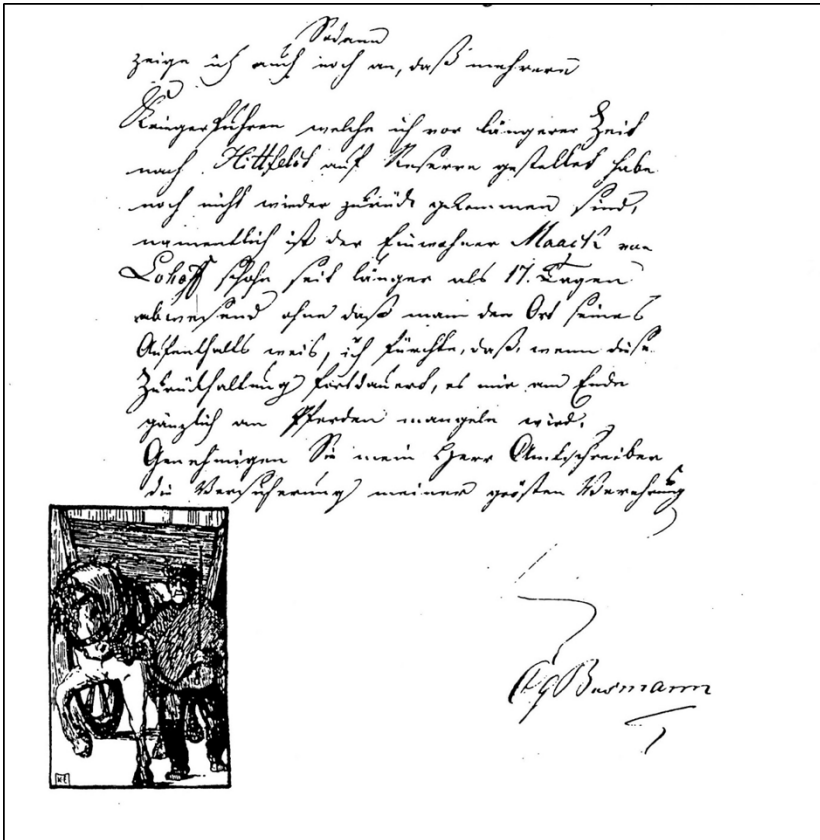 Sodann
zeige ich auch noch an, daß mehrere
Kriegerfuhren welche ich vor längerer Zeit
nach Hittfeldt auf Reserve gestellet habe
noch nicht wieder zurück gekommen sind,
namentlich ist der Einwohner Maack von
Lohoff schohn seit länger als 17. Tagen
abwesend ohne daß man den Ort seines
Aufenthalts weis, ich fürchte, daß, wenn diese
Zurückhaltung fortdauert, es mir am Ende
gänzlich an Pferden mangeln wird.
Genehmigen Sie mein Herr Amtsschreiber
die Versicherung meiner grösten Verehrung
Busmann